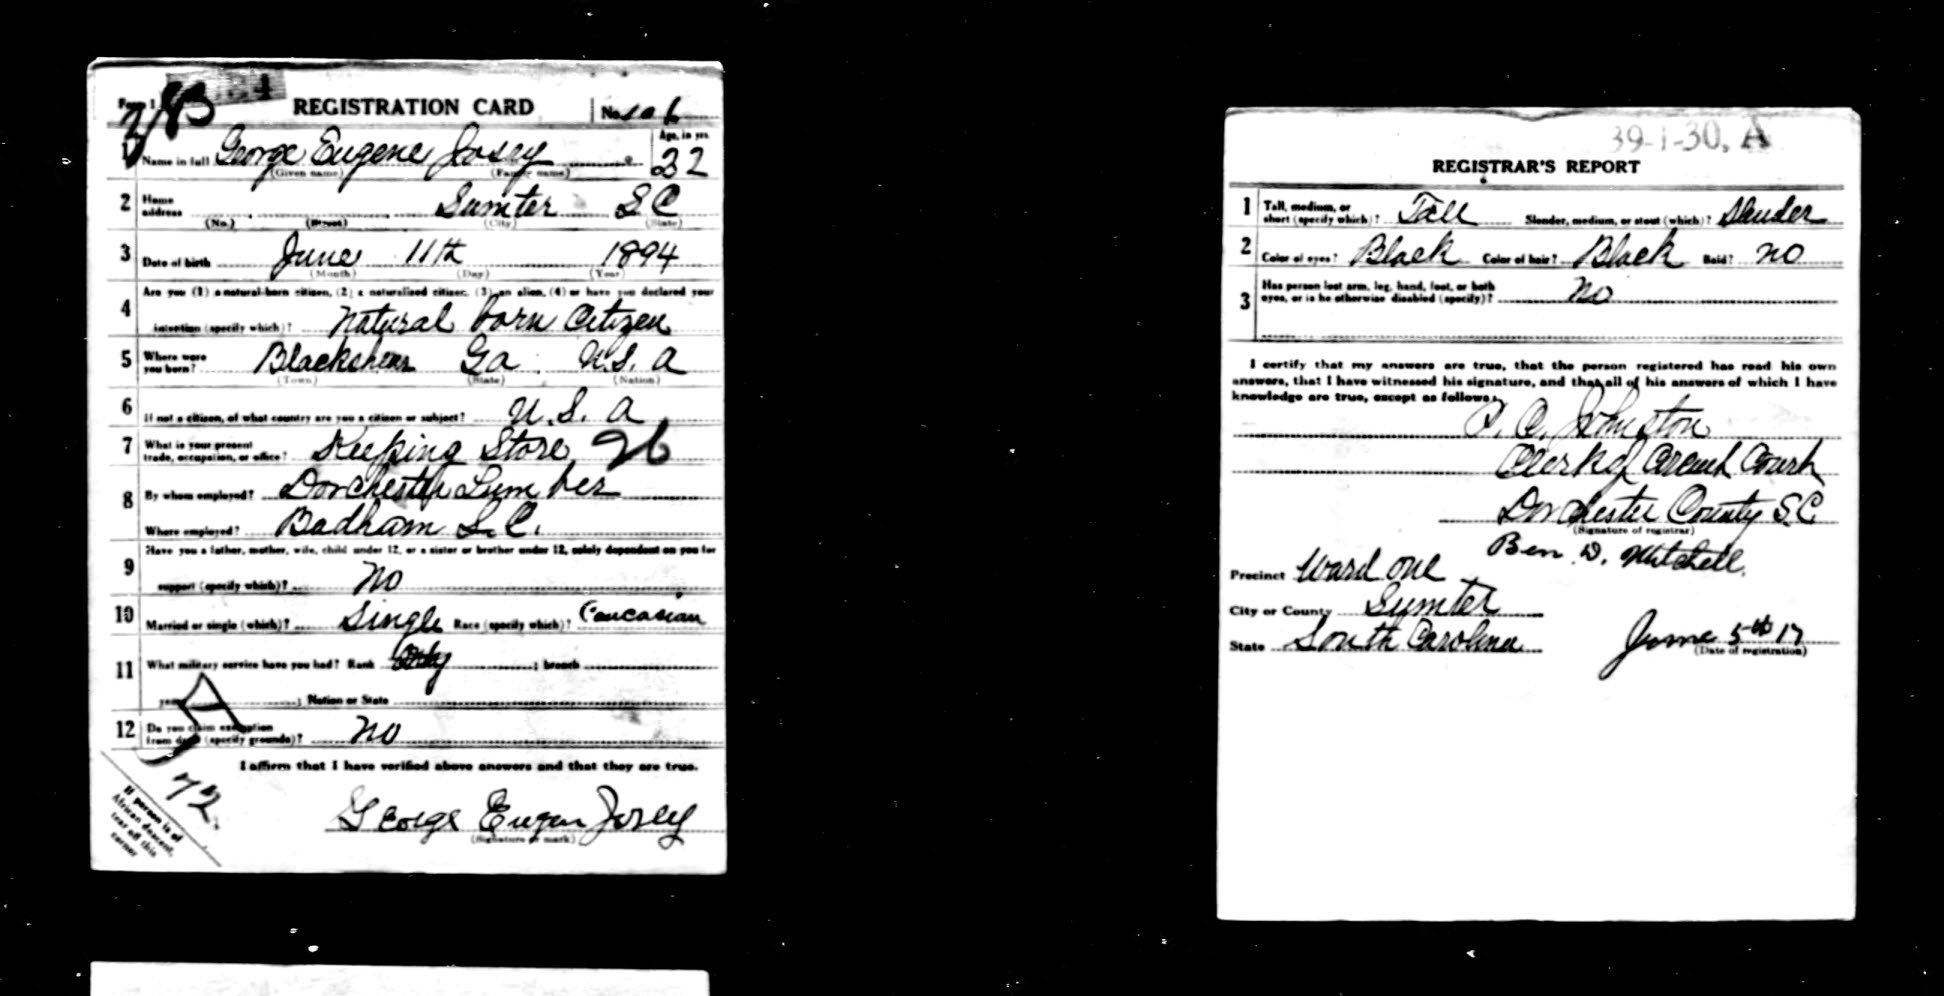 Page 1
3/83
REGISTRATION CARD No. 106
1 Name in full George Eugene Josey Age, in yrs. 22
(Given name) (Family name)
2 Home address Sumter S C
(No.) (Street) (City) (State)
3 Date of birth June 11th 1894
(Month) (Day) (Year)
4 Are you (1) a natural-born citizen, (2) a naturalized citizen, (3) an alien, (4) or have you declared your
intention (specify which)? Natural born Citizen
5 Where were you born? Blackshear Ga. U.S.A
(Town) (State) (Nation)
6 If not a citizen, of what country are you a citizen or subject? U.S.A
7 What is your present trade, occupation, or office? Keeping Store 26
8 By whom employed? Dorchester Lumber
Where employed? Badham S.C.
9 Have you a father, mother, wife, child under 12, or a sister or brother under 12, solely dependent on you for
support (specify which)? No
10 Married or single (which)? Single Race (specify which)? Caucasian
11 What military service have you had? Rank ; branch
years ; Nation or State
12 Do you claim exemption from draft (specify grounds)? No
I affirm that I have verified above answers and that they are true.
72
George Eugen Josey
(Signature or mark)
If person is of
African descent,
tear off this
corner
39-1-30, A
REGISTRAR'S REPORT
1 Tall, medium, or short (specify which)? Tall Slender, medium, or stout (which)? Slender
2 Color of eyes? Black Color of hair? Black Bald? No
3 Has person lost arm, leg, hand, foot, or both eyes, or is he otherwise disabled (specify)? No
I certify that my answers are true, that the person registered has read his own
answers, that I have witnessed his signature, and that all of his answers of which I have
knowledge are true, except as follows:
Johnston
Clerk of Circuit Court
Dorchester County S.C
(Signature of registrar)
Ben D. Mitchell.
Precinct Ward one
City or County Sumter
State South Carolina June 5th 17
(Date of registration)